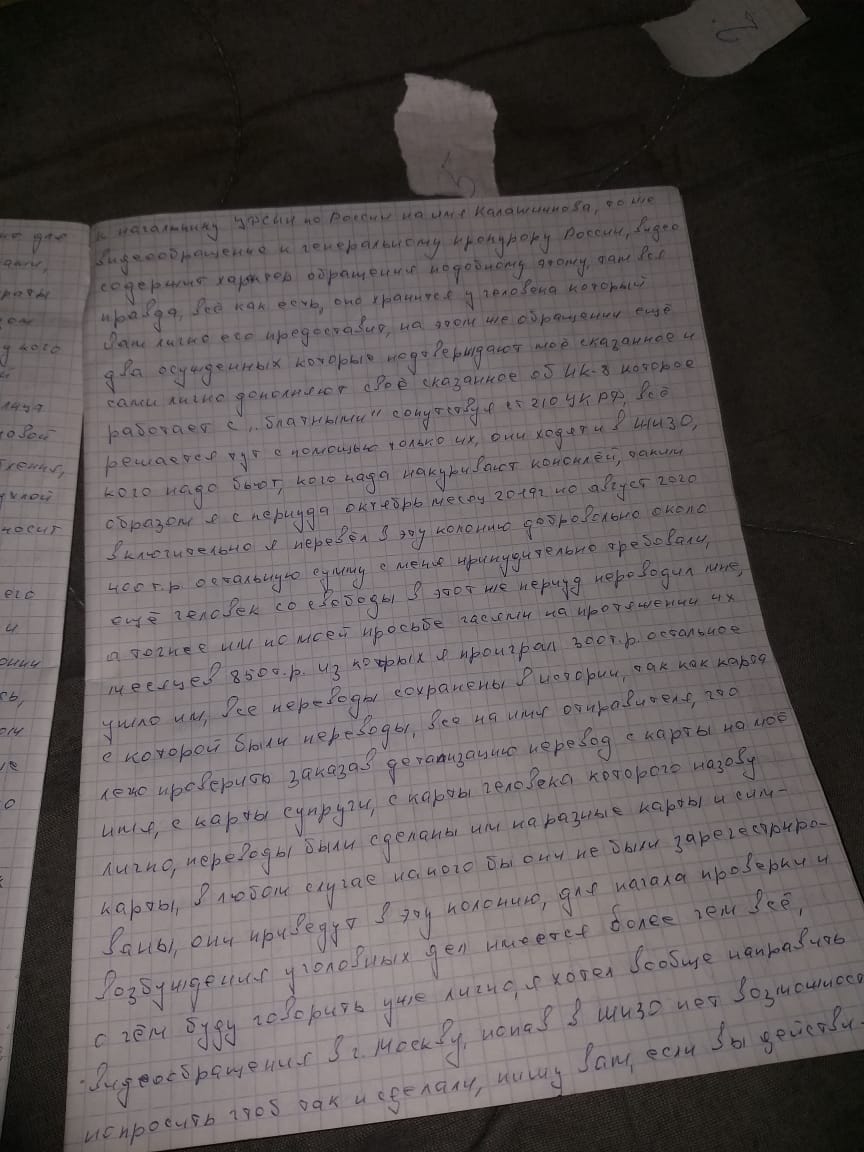 2
3
но для
ами,
раты
ого
овой
ения,
ухлой
носит
его
и
онии
сь,
ом
о
к начальнику УФСИН по России на имя Калашникова, то же
видеообращение к генеральному прокурору России, видео
содержит характер обращения подобному этому, там вся
правда, всё как есть, оно хранится у человека который
Вам лично его предоставит, на этом же обращении ещё
два осужденных которые подтверждают моё сказанное и
сами лично дополняют своё сказанное об ИК-8 которое
работает с „блатными" сопутствуя ст 210 УК РФ, всё
решается тут с помощью только их, они ходят и в ШИЗО,
кого надо бьют, кого нада накуривают коноплёй, таким
образом я с периуда октябрь месяц 2019г по август 2020
включительно я перевёл в эту колонию добровольно около
400т.р. остальную сумму с меня принудительно требовали,
ещё человек со свободы в этот же периуд переводил мне,
а точнее им по моей просьбе частями на протяжении их
месяцев 850т.р. из которых я проиграл 300т.р. остальное
ушло им, все переводы сохранены в истории, так как карта
с которой были переводы, все на имя отправителя, это
легко проверить заказав детализацию перевод с карты на моё
имя, с карты супруги, с карты человека которого назову
лично, переводы были сделаны им на разные карты и сим-
карты, в любом случае на кого бы они не были зарегестриро-
ваны, они приведут в эту колонию, для начала проверки и
возбуждения уголовных дел имеется более чем всё,
о чём буду говорить уже лично, я хотел вообще направить
видеообращения в г. Москву, попав в ШИЗО нет возможност
испросить чтоб так и сделали, пишу Вам, если вы действи-